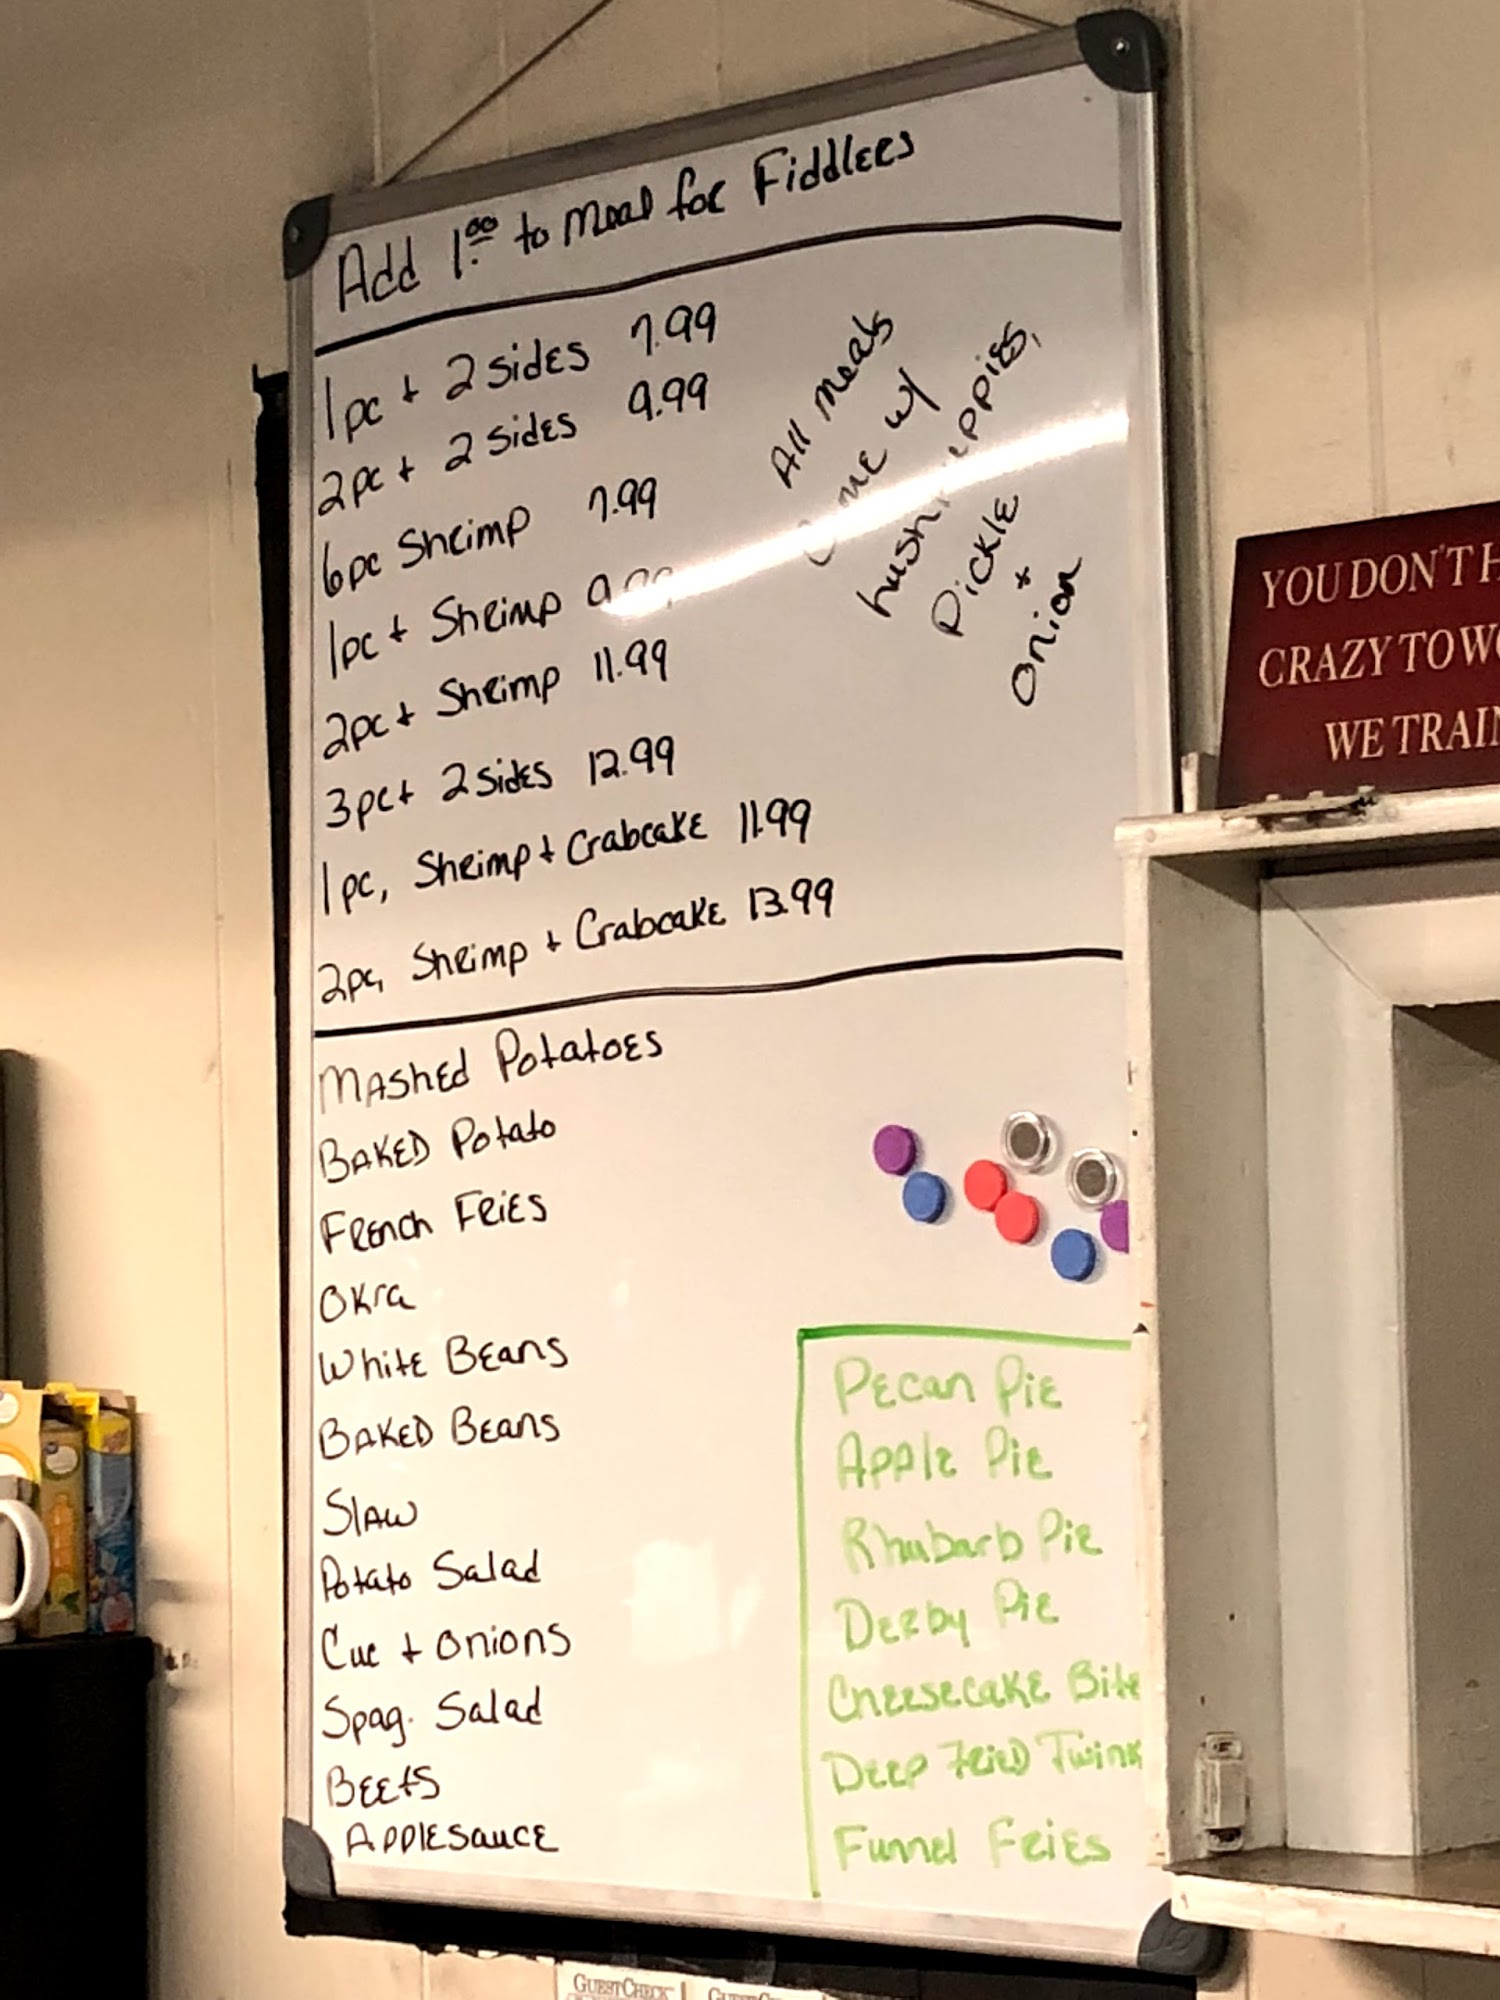 Add 1.00 to Meal for Fiddlers
1pc + 2 sides 7.99
2pc + 2 sides 9.99
6pc Shrimp 7.99
1pc + Shrimp 9.99
2pc + Shrimp 11.99
3pc + 2 sides 12.99
1pc, Shrimp + Crabcake 11.99
2pc, Shrimp + Crabcake 13.99
All Meals
Come w/
hushpuppies,
Pickle
+
Onion
Mashed Potatoes
Baked Potato
French Fries
Okra
White Beans
Baked Beans
Slaw
Potato Salad
Cuc + Onions
Spag. Salad
Beets
Applesauce
Pecan Pie
Apple Pie
Rhubarb Pie
Derby Pie
Cheesecake Bite
Deep Fried Twink
Funnel Fries
YOU DON'T H
CRAZY TO WO
WE TRAIN
GUESTCHECK